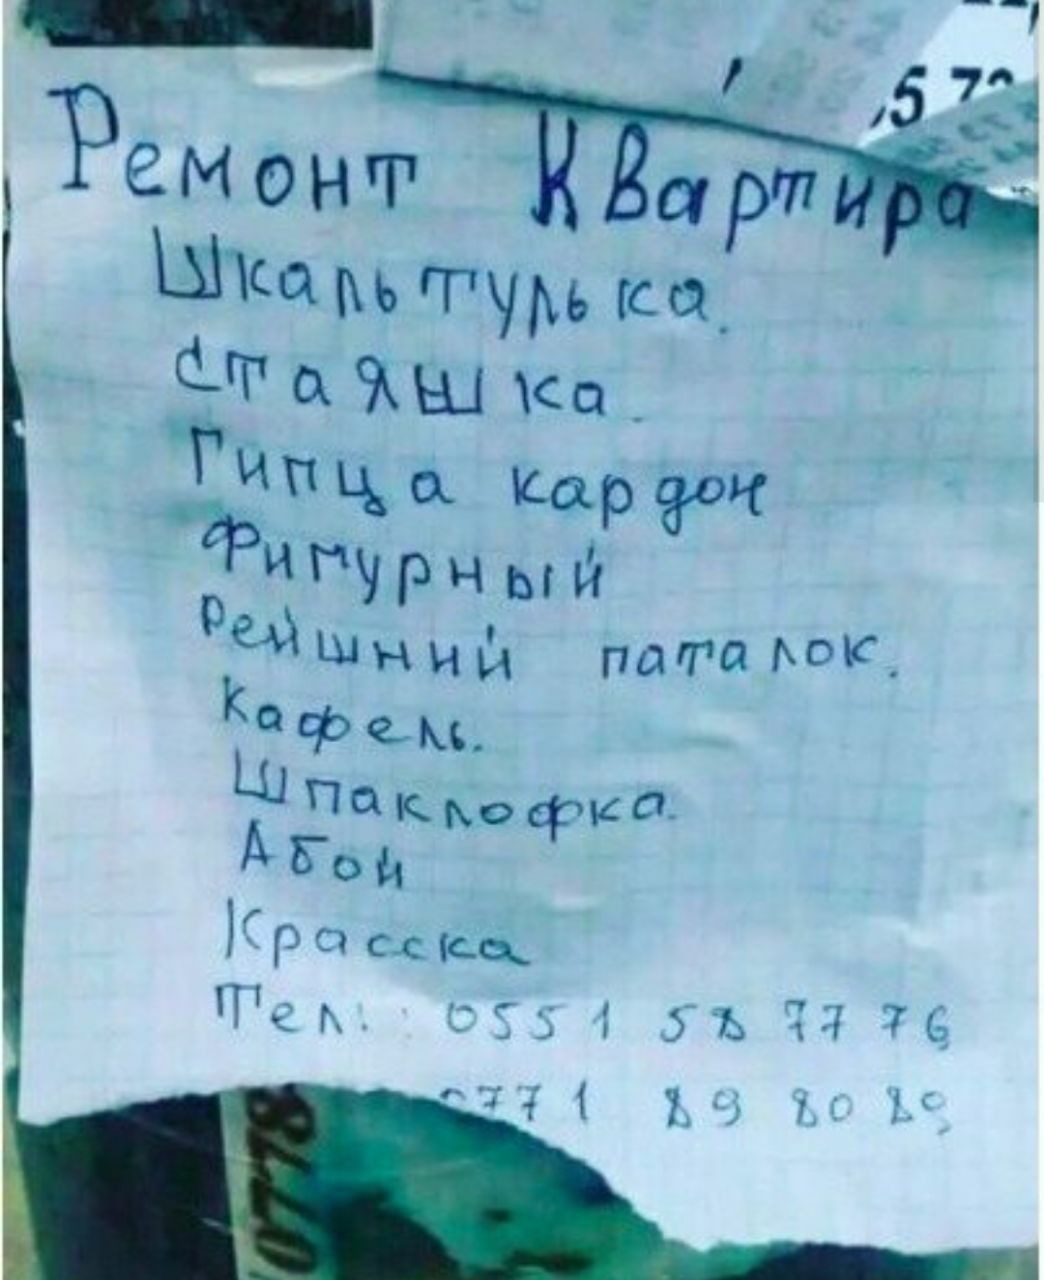 5 7
Ремонт Квартира
Шкальтулька.
Стаяшка
Гипца кардон
Фигурный
Рейшний паталок.
Кафель.
Шпаклофка.
Абой
Красска
Тел: 0551 58 77 76
0771 89 80 89